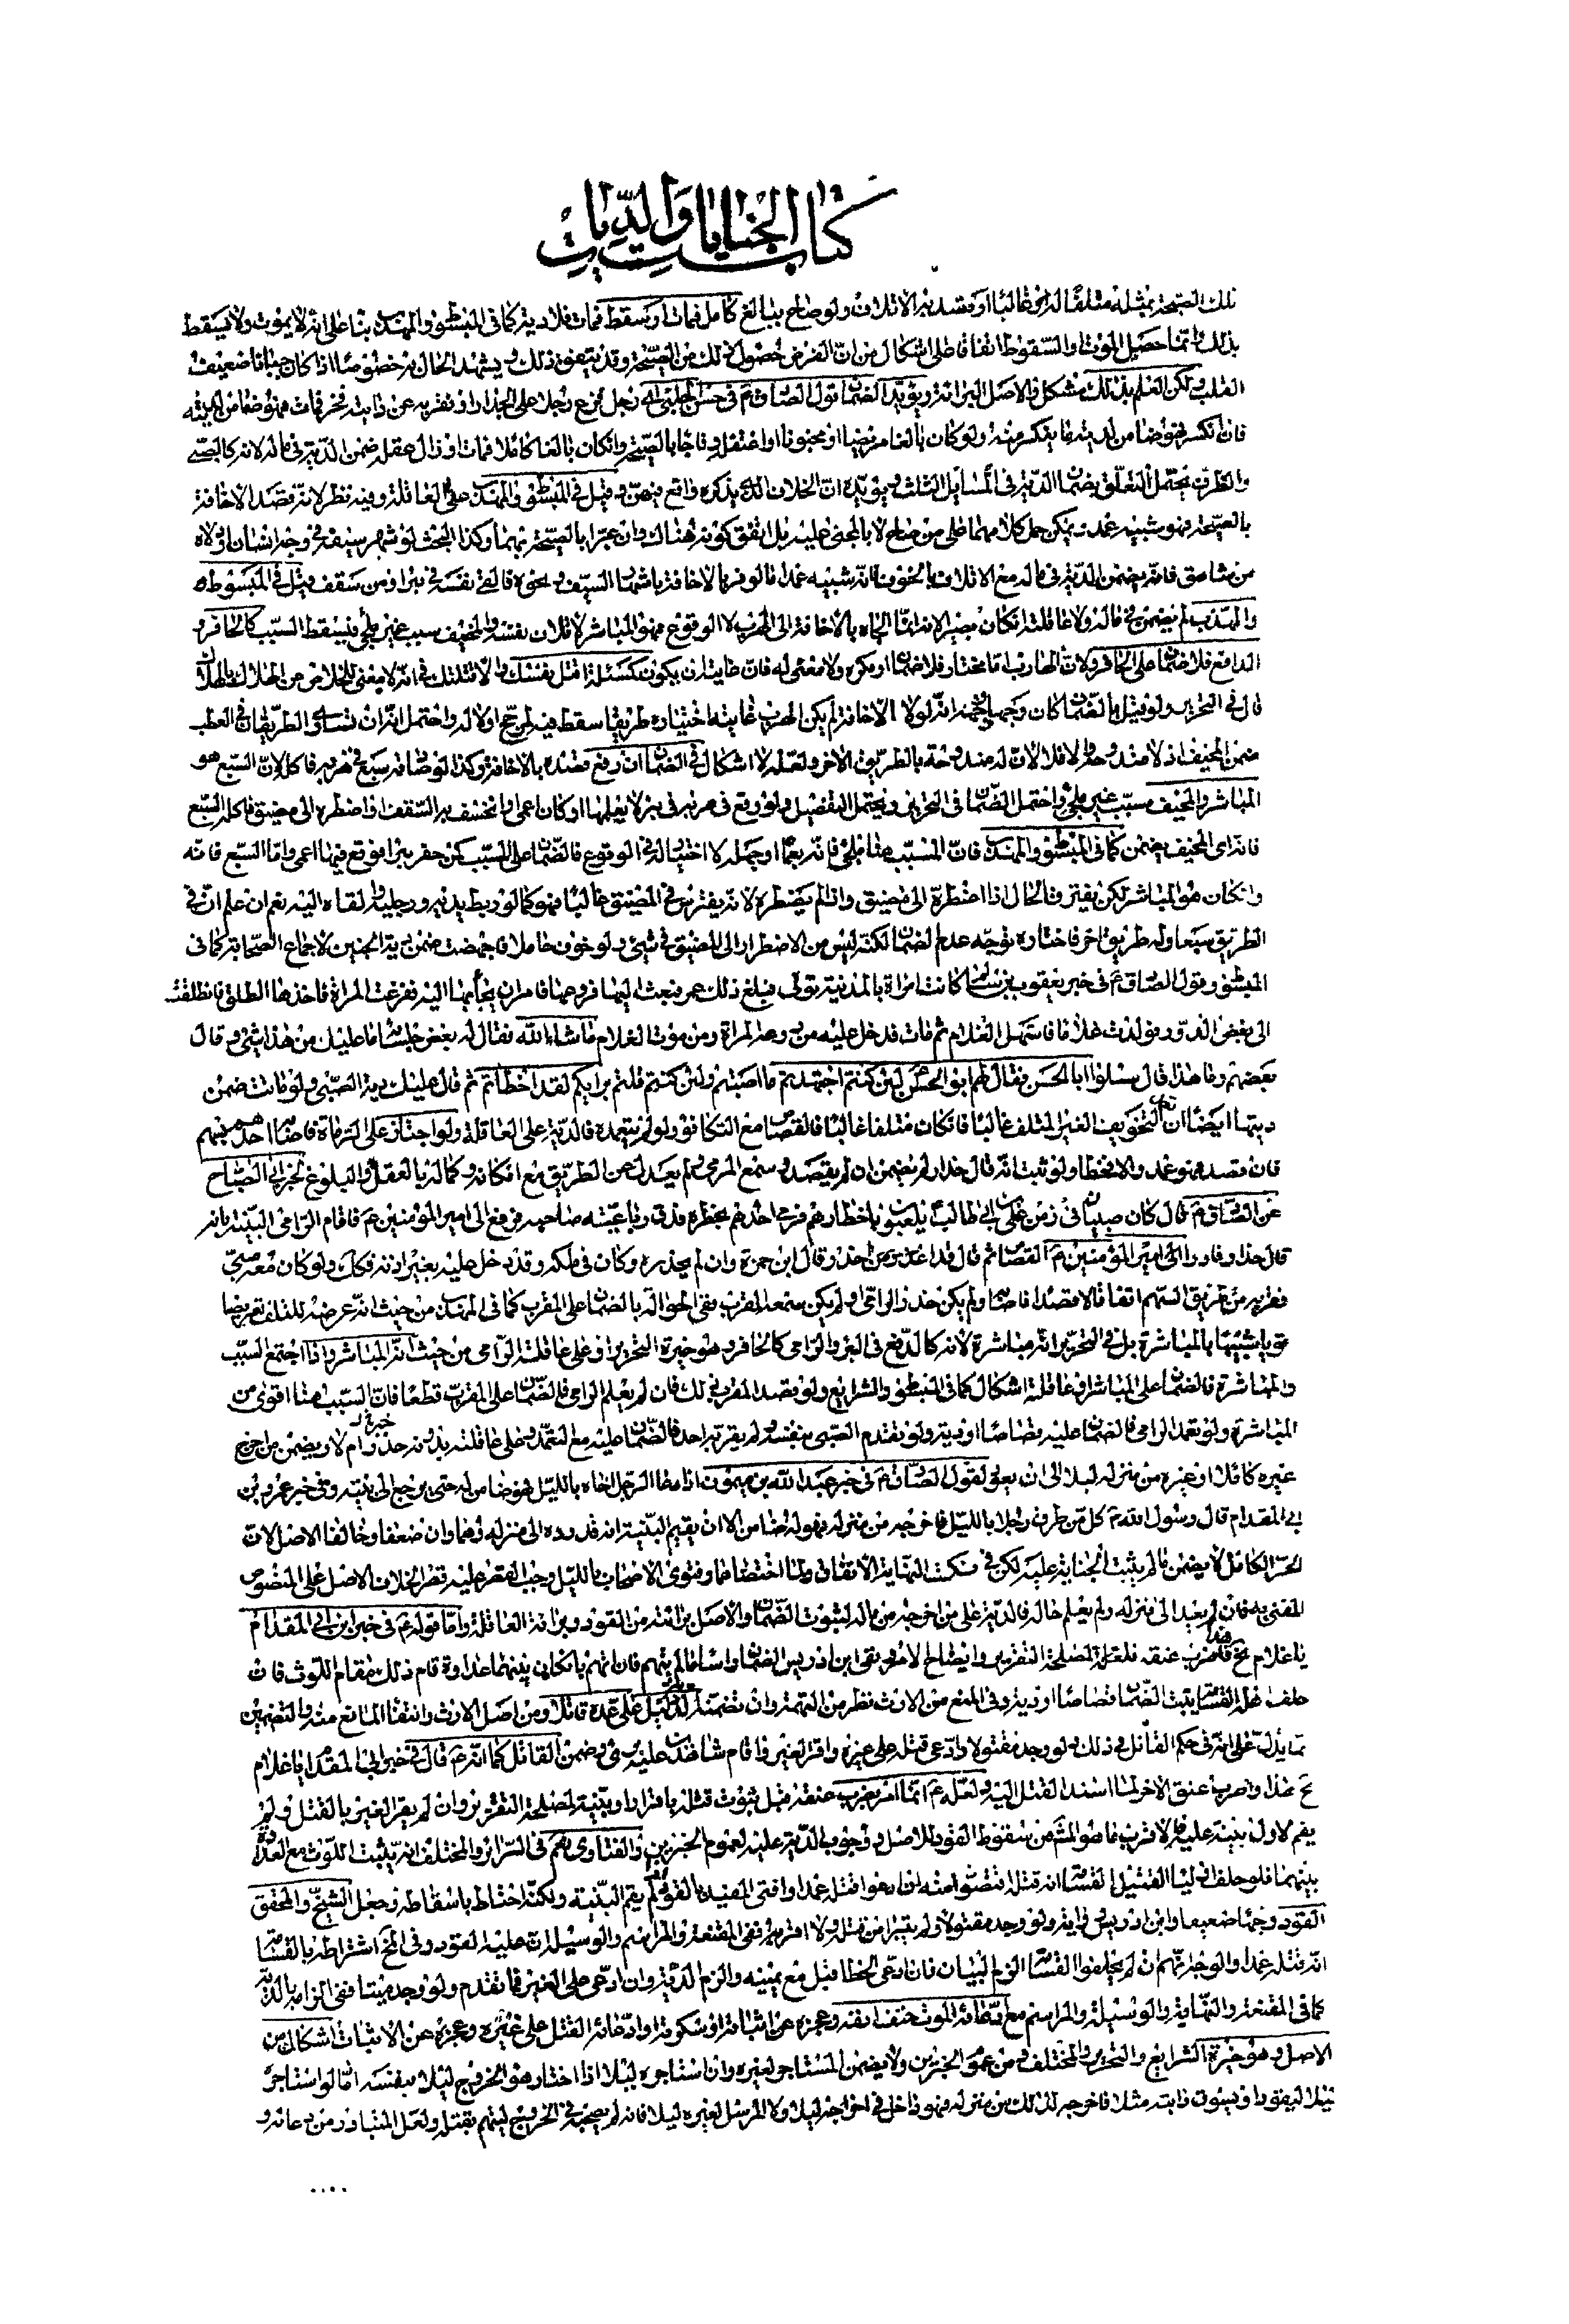 كتاب الجنايات والديات
تلك الصيحة بمثله متلفا له غالبا او يقصد به الاتلاف ولو صاح ببالغ كامل فمات او سقط فمات فلا دية كما في المبسوط والمهذب بناء على انه لا يموت ولا يسقط
بذلك وانما حصل الموت والسقوط اتفاقا على اشكال من ان الفرض حصول ذلك من الصيحة وقد يتفق ذلك ويشهد الحال به خصوصا اذا كان جبانا ضعيف
القلب ولكن العلم بذلك مشكل فالاصل البرائة ويؤيد الضمان قول الصادق ع في حسن الحلبي اي رجل فزع رجلا على الجدار او نفر به عن دابته فخر فمات فهو ضامن لديته
فان انكسر فهو ضامن لدية ما ينكسر منه ولو كان بالغا مريضا او مجنونا او اغتفله وفاجا بالصيحة وان كان بالغا كاملا فمات او زال عقله ضمن الدية في ماله لانه كالصبي
والظرف يحتمل التعلق بضمان الدية في المسايل الثلث ويؤيده ان الخلاف الذي يذكره واقع فيهن وقيل في المبسوط والمهذب على العاقلة وفيه نظر لانه قصد الاخافة
بالصيحة فهو شبيه عمد
من شاهق فانه يضمن الدية في ماله مع الاتلاف بالخوف فانه شبيه عمد اما لو فر بالاخافة باشهار السيف ونحوه فالقى نفسه في بئر او من سقف قيل في المبسوط
والمهذب لم يضمن في ماله ولا عاقلته ان كان بصيرا لانه انما الجاه بالاخافة الى الهرب لا الوقوع فهو المباشر لاتلاف نفسه والمخيف سبب غير ملجئ فيسقط السبب كالحافر و
الدافع فلا ضمان على الحافر ولان الهارب اما مختار فلا ضمان او مكره ولا معنى له فان غايته ان يكون كمسئلة اقتل نفسك والا قتلتك في انه لا معنى للخلاص من الهلاك بالهلاك
قال في التحرير ولو قيل بالضمان كان وجها لانه لولا الاخافة لم يكن الهرب غايته اختياره طريقا سقط فيه لمرجح اولا له واحتمل انه ان تساوى الطريقان في العطب
ضمن المخيف اذ لا مندوحة والا فلا لان له مندوحة بالطريق الاخر ولعله لا اشكال في الضمان ان رفع قصده بالاخافة وكذا لو صادفه سبع في هربه فاكله لان السبع هو
المباشر والمخيف مسبب غير ملجئ واحتمل الضمان في التحرير ويحتمل التفصيل ولو وقع في هربه في بئر لا يعلمها او كان اعمى او انخسف به السقف او اضطره الى مضيق فاكله السبع
فانه اي المخيف يضمن كما في المبسوط والمهذب فان المسبب هنا ملجئ فانه بعماه او جهله لا اختيار له في الوقوع فالضمان على السبب كمن حفر بئرا فوقع فيها اعمى واما السبع فانه
وان كان هو المباشر لكن يفترق الحال اذا اضطره الى مضيق وان لم يضطره لانه يفترس في المضيق غالبا فهو كما لو ربط يديه ورجليه والقاه اليه نعم ان علم ان في
الطريق سبعا وله طريق اخر فاختاره توجه عدم الضمان لكنه ليس من الاضطرار الى المضيق في شيء ولو خوف حاملا فاجهضت ضمن دية الجنين لاجماع الصحابة كما في
المبسوط وقول الصادق ع في خبر يعقوب بن سالم كانت امراة بالمدينة تؤتى فبلغ ذلك عمر فبعث اليها فروعها وامر ان يجاء بها اليه ففزعت المراة فاخذها الطلق فانطلقت
الى بعض الدور فولدت غلاما فاستهل الغلام ثم مات فدخل عليه من روعة المراة ومن موت الغلام ما شاء الله فقال له بعض جلسائه ما عليك من هذا شيء وقال
بعضهم وما هذا قال سلوا ابا الحسن فقال لهم ابو الحسن لئن كنتم اجتهدتم ما اصبتم ولئن كنتم قلتم برايكم لقد اخطاتم ثم قال عليك دية الصبي ولو ماتت ضمن
ديتها ايضا ان التخويف الغير المتلف غالبا فان كان متلفا غالبا فالقصاص مع التكافؤ ولو لم يتعمده فالدية على العاقلة ولو اجتاز على الرماة فاصابه احدهم بسهم
فان قصد فهو عمد والا فخطا ولو ثبت انه قال حذار لم يضمن ان لم يقصد وسمع المرمي ولم يعدل عن الطريق مع امكانه وكماله بالعقل والبلوغ لخبر ابي الصباح
عن الصادق ع قال كان صبيان في زمن علي بن ابي طالب يلعبون باخطارهم فرمى احدهم بخطره فدق رباعية صاحبه فرفع الى امير المؤمنين ع فاقام الرامي البينة بانه
قال حذار فادرا امير المؤمنين ع القصاص ثم قال قد اعذر من حذر وقال ابن حمزة وان لم يحذره وكان في ملكه وقد دخل عليه بغير اذنه فكل ولو كان معه صبي
فقربه من طريق السهم اتفاقا لا قصدا فاصابه ولم يكن حذر الرامي او لم يكن سمعه المقرب ففي الحوالة بالضمان على المقرب كما في المهذب من حيث انه عرضه للتلف تعريضا
قويا شبيها بالمباشرة بل في التحرير انه مباشرة لانه كالدافع في البئر والرامي كالحافر وهو خيرة التحرير او على عاقلة الرامي من حيث انه المباشر واذا اجتمع السبب
والمباشرة فالضمان على المباشر او عاقلته اشكال كما في المبسوط والشرايع ولو قصد المقرب ذلك فان لم يعلم الرامي فالضمان على المقرب قطعا فان السبب هنا اقوى من
المباشرة ولو تعمد الرامي فالضمان عليه قصاصا او دية ولو تقدم الصبي بنفسه ولم يقربه احد فالضمان عليه مع التعمد وعلى عاقلته بدونه حذر ام لا ويضمن من اخرج
غيره كاملا او غيره من منزله ليلا الى ان يعود لقول الصادق ع في خبر عبد الله بن ميمون اذا دعا الرجل اخاه بالليل فهو ضامن له حتى يرجع الى بيته وفي خبر عمرو بن
ابي المقدام قال رسول الله ص كل من طرق رجلا بالليل فاخرجه من منزله فهو له ضامن الا ان يقيم البينة انه قد رده الى منزله وهما وان ضعفا وخالفا الاصل لان
الحر الكامل لا يضمن ما لم يثبت الجناية عليه لكن في نكت النهاية الاتفاق ولما اختصاصهما وفتوى الاصحاب بالليل وجب القصر عليه قصر الخلاف الاصل على المنصوص
المفتى به فان لم يعد الى منزله ولم يعلم حاله فالدية على من اخرجه من ماله لثبوت الضمان والاصل برائته من القود وبرائة العاقلة واما قوله ع في خبر ابن ابي المقدام
يا غلام نح هذا فاضرب عنقه فلعله لمصلحة التقرير وايضاح الامر ونفى ابن ادريس الضمان راسا ما لم يتهم فان اتهم بان كان بينهما عداوة قام ذلك مقام اللوث فان
حلف على القسامة يثبت الضمان قصاصا او دية وفي المنع من الارث نظر من التهمة وان تضمنه الدليل على عده قاتلا ومن اصل الارث وانتفاء المانع منه والتضمين
مما يدل على انه في حكم القاتل في ذلك ولو وجد مقتولا وادعى قتله على غيره واقر الغير او اقام شاهدين عليه برئ وضمن القاتل كما انه ع قال في خبر ابن ابي المقدام يا غلام
نح هذا واضرب عنق الاخر لما اسند القتل اليه ولعله ع انما امر بضرب عنقه قبل ثبوت قتله باقرار او بينة لمصلحة التقرير وان لم يقر الغير بالقتل ولم
يقم الاول بينة عليه فالاقرب ما هو المش من سقوط القود للاصل ووجوب الدية عليه لعموم الخبرين والفتاوى نعم في السرائر والمختلف انه يثبت اللوث مع العداوة
بينهما فلو حلف اولياء القتيل القسامة انه قتله اقتصوا منه ان ادعوا قتله عمدا وافتى المفيد بالقود ان لم يقم البينة ولكنه احتاط باسقاطه وجعل الشيخ والمحقق
القود وجها ضعيفا وابن ادريس رواية ولو وجد مقتولا ولم يتبرا من قتله ولا اقر به ففي المقنعة والمراسم والوسيلة ان عليه القود وفي الخ اشتراطه بالقسامة
انه قتله عمدا والوجه انهم ان لم يحلفوا القسامة الزم البيان فان ادعى الخطا قبل مع يمينه والزم الدية وان ادعى على الغير فما تقدم ولو وجد ميتا ففي الزامه بالدية
كما في المقنعة والنهاية والوسيلة والمراسم مع ادعائه الموت حتف انفه وعجزه عن اثباته او سكوته او ادعائه القتل على غيره وعجزه عن الاثبات اشكال من
الاصل وهو خيرة الشرايع والتحرير والمختلف ومن عموم الخبرين ولا يضمن المستاجر لغيره وان استاجره ليلا اذا اختار هو الخروج ليلا بنفسه اما لو استاجره
ليلا ليقود او يسوق دابته مثلا فاخرجه لذلك من منزله فهو داخل في اخراجه ليلا ولا المرسل لغيره ليلا فانه لم يصحبه في الخروج ليتهم بقتله ولعل المتبادر من دعائه و